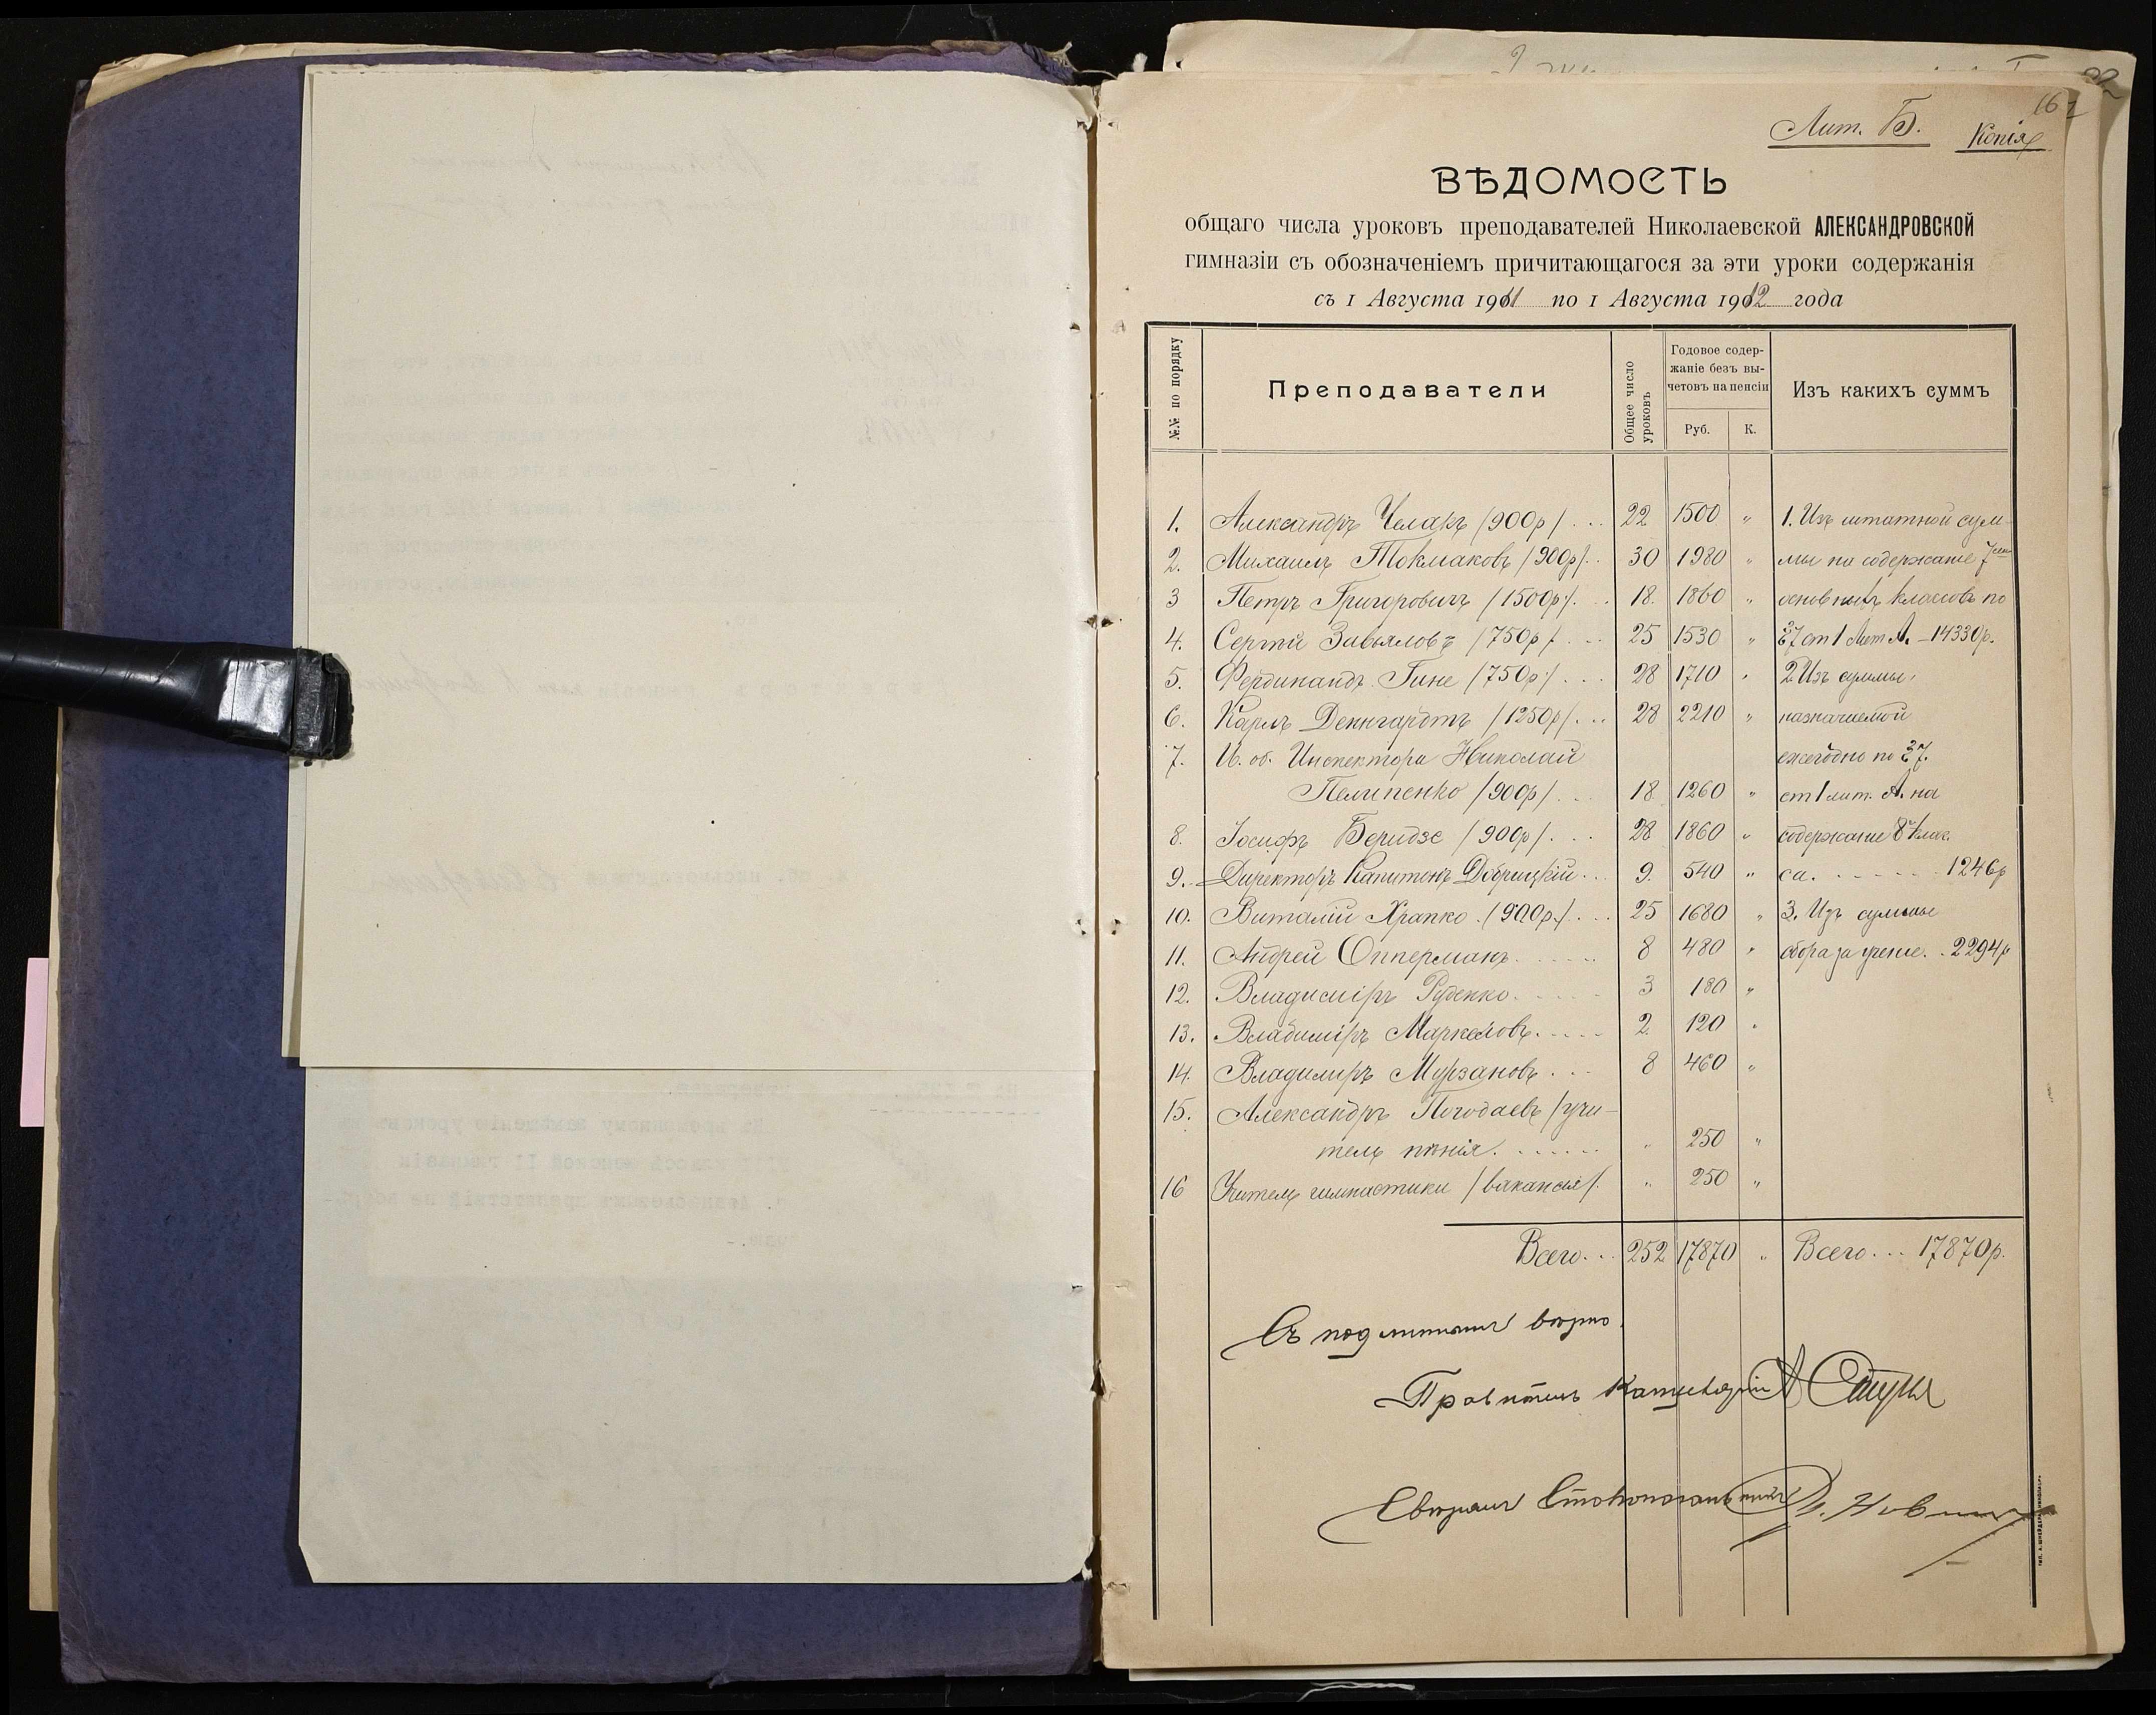 Лит. Б. Копія
ВѢДОМОСТЬ
общаго числа уроковъ преподавателей Николаевской АЛЕКСАНДРОВСКОЙ
гимназіи съ обозначеніемъ причитающагося за эти уроки содержанія
съ 1 Августа 1911 по 1 Августа 1912 года
№№ по порядку
Преподаватели
Общее число уроковъ
Годовое содер-
жаніе безъ вы-
четовъ на пенсіи
Руб. К.
Изъ какихъ суммъ
1. Александръ Челакъ /900р/ 22 1500 " 1. Изъ штатной сум-
2. Михаилъ Токмаковъ /900р/. 30 1980 " мы на содержаніе 7ми
3 Петръ Григоровичъ /1500р/. 18. 1860 " основныхъ классовъ по
4. Сергѣй Завьяловъ /750р/ 25 1530 " § 7 ст 1 Лит А. – 14330р.
5. Фердинандъ Гине /750р/ 28 1710 " 2 Изъ суммы,
6. Карлъ Денгардтъ /1250р/. 28 2210 " назначаемой
7. И. об. Инспектора Николай ежегодно по § 7.
Пелипенко /900р/. 18 1260 " ст 1 лит. А. на
8. Іосифъ Беридзе /900р/. 28 1860 " содержаніе 8 клас.
9. Директоръ Капитонъ Добрицкій 9. 540 " са. 1246р
10. Виталій Храпко. /900р./. 25 1680 " 3. Изъ суммы
11. Андрей Опперманъ. 8 480 " сбора за ученіе. 2294р
12. Владиміръ Руденко. 3 180 "
13. Владиміръ Маркеловъ. 2 120 "
14. Владимиръ Мурзановъ. 8 460 "
15. Александръ Погодаевъ /учи-
тель пѣнія. " 250 "
16 Учитель гимнастики /вакансія/. " 250 "
Всего... 252 17870 " Всего... 17870р.
Съ подлиннымъ вѣрно.
Правитель Канцеляріи А
Свѣрялъ Столоначальникъ